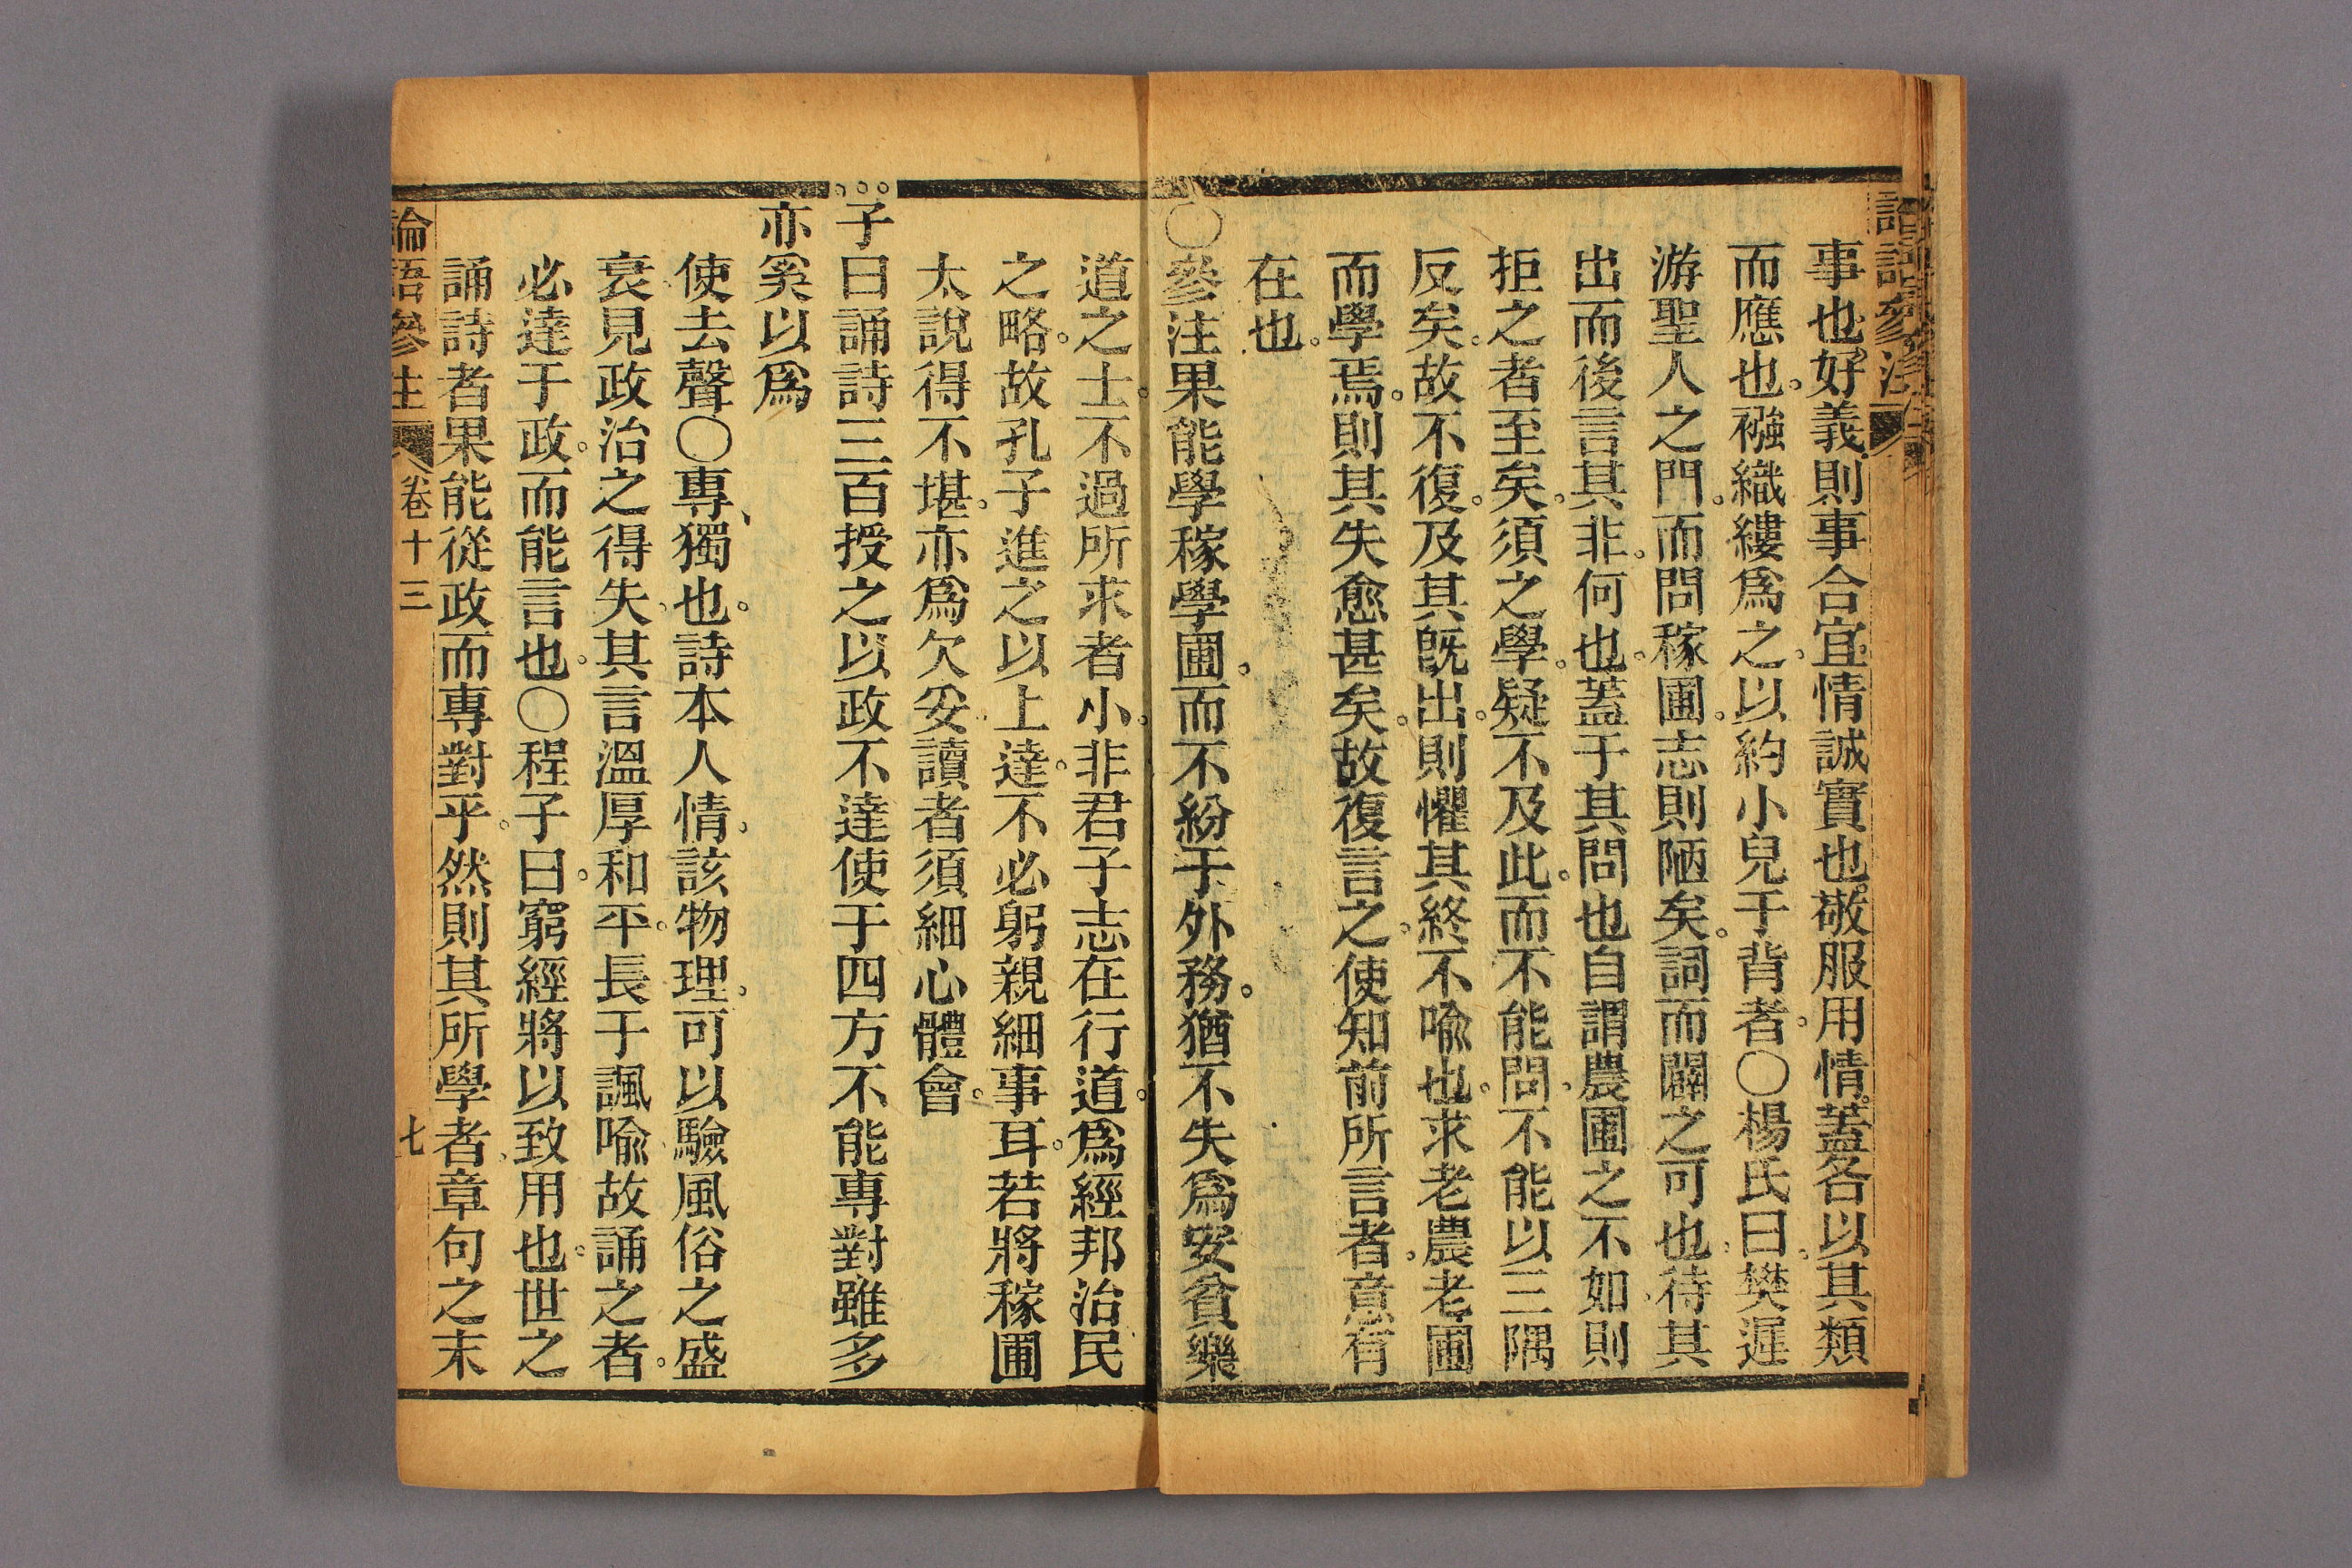 事也好義則事合宜情誠實也敬服用情蓋各以其類
而應也襁織縷爲之以約小兒于背者〇楊氏曰樊遲
游聖人之門而問稼圃志則陋矣詞而闢之可也待其
出而後言其非何也蓋于其問也自謂農圃之不如則
拒之者至矣須之學疑不及此而不能問不能以三隅
反矣故不復及其旣出則懼其終不喩也求老農老圃
而學焉則其失愈甚矣故復言之使知前所言者意有
在也
〇參注果能學稼學圃而不紛于外務猶不失爲安貧樂
道之士不過所求者小非君子志在行道爲經邦治民
之略故孔子進之以上達不必躬親細事耳若將稼圃
太說得不堪亦爲欠妥讀者須細心體會
子曰誦詩三百授之以政不達使于四方不能專對雖多
亦奚以爲
使去聲〇專獨也詩本人情該物理可以驗風俗之盛
衰見政治之得失其言溫厚和平長于諷喩故誦之者
必達于政而能言也〇程子曰窮經將以致用也世之
誦詩者果能從政而專對乎然則其所學者章句之末
論語參注 卷十三 七